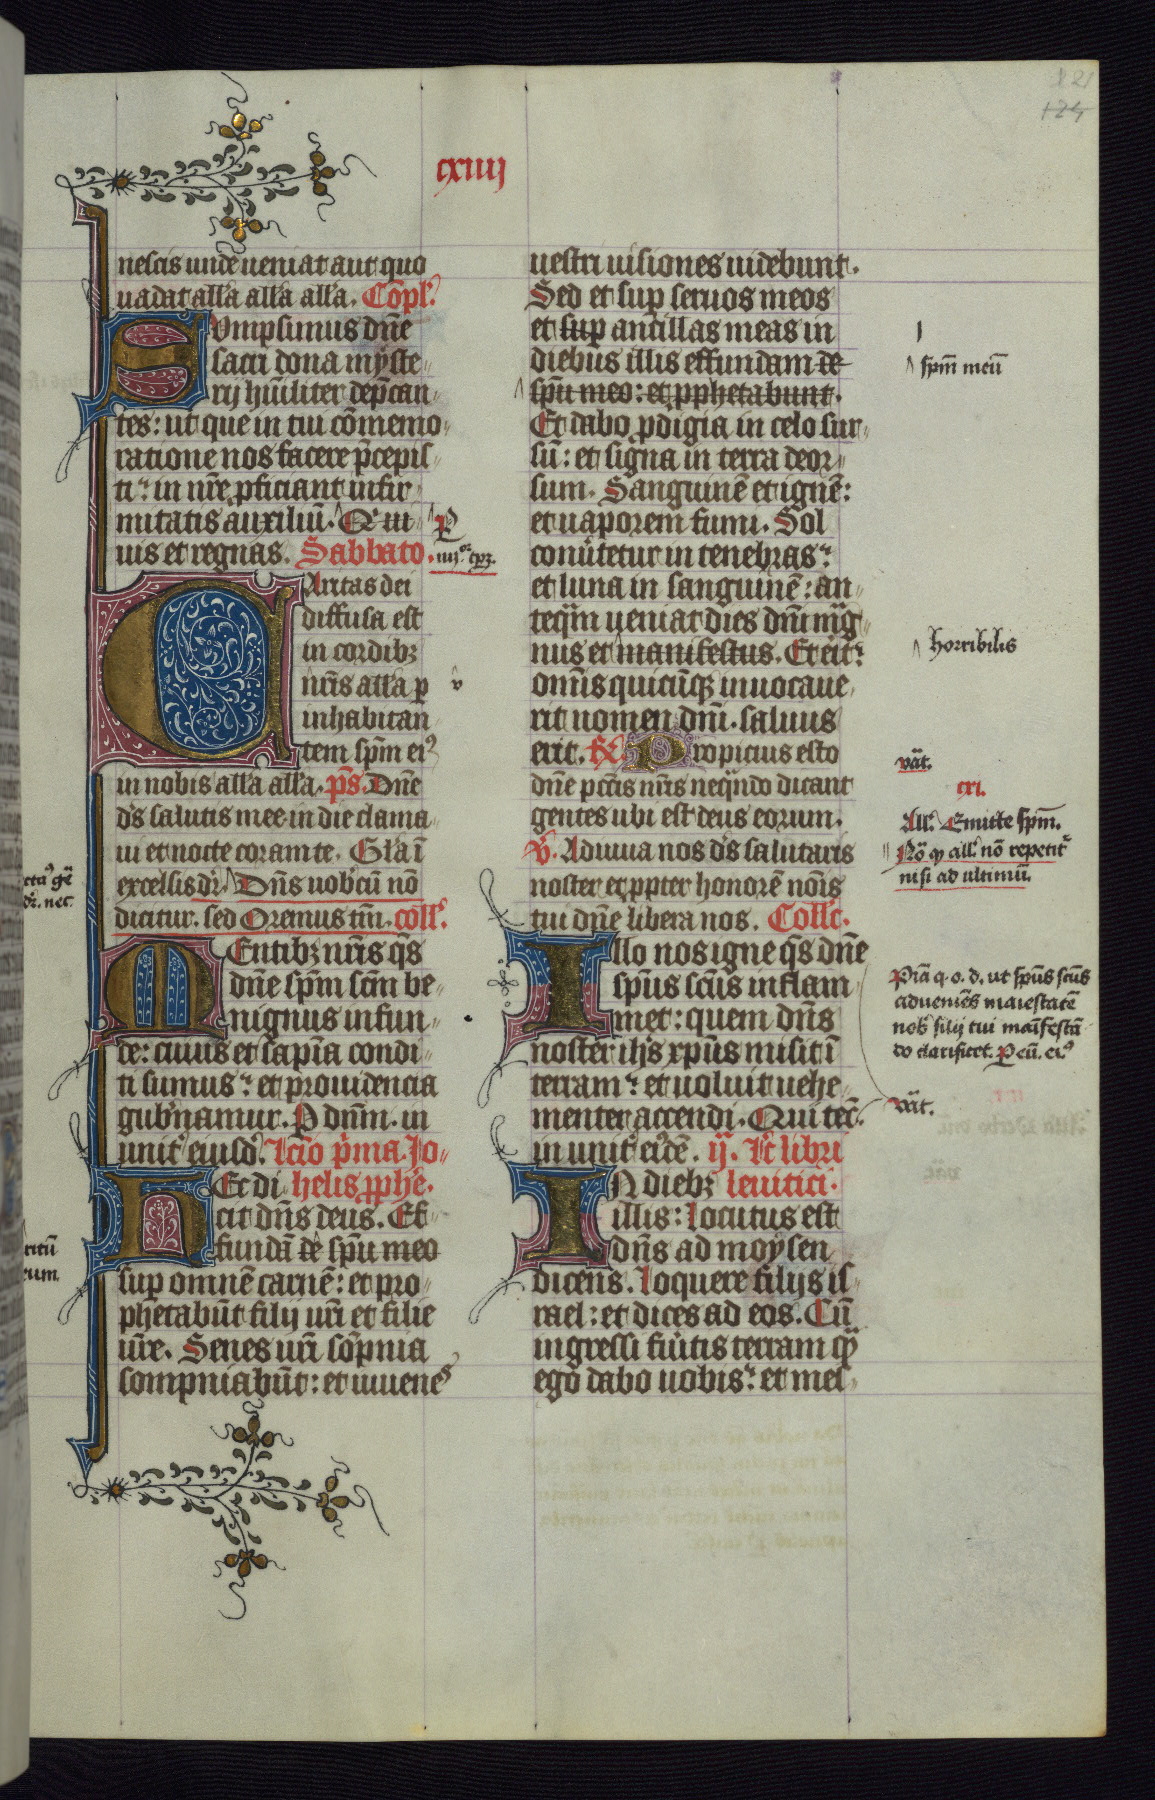 cxiiij
121
124
nescis unde ueniat aut quo
uadat allã allã allã. Cõpl'.
Sumpsimus dñe
sacri dona myste
rij hũiliter dep̃can
tes: ut que in tui cõmemo
ratione nos facere p̃cepis
ti: in nr̃e ꝓficiant infir
mitatis auxiliũ. Qui ui
uis et regnas. Sabbato.
iiijor tpꝝ.
Caritas dei
diffusa est
in cordibꝫ
nr̃is allã p
inhabitan
tem spm̃ eiꝰ
in nobis allã allã. ps̃. Dñe
ds̃ salutis mee in die clama
ui et nocte coram te. Glã ĩ
excelsis dr̃. Dñs uobcũ nõ
dicitur. sed Oremus tm̃. coll'.
Mentibꝫ nr̃is q̃s
dñe spm̃ scm̃ be
nignus infun
de: cuius et sapĩa condi
ti sumus: et prouidencia
gub'namur. P dnm̃. in
unit' eiusd'. Lcio p̃ma. Jo
Hec di helis ꝓph̃e.
cit dñs deus. Ef
fundã de spũ meo
sup omnẽ carnẽ: et pro
phetabũt filij ur̃i et filie
ur̃e. Senes ur̃i sõpnia
sompniabũt: et iuuenes
uestri uisiones uidebunt.
Sed et sup seruos meos
et sup ancillas meas in
diebus illis effundam de
spũ meo: et ꝓphetabunt.
spm̃ meũ
Et dabo ꝓdigia in celo sur
sũ: et signa in terra deor
sum. Sanguinẽ et ignẽ:
et uaporem fumi. Sol
conũtetur in tenebras:
et luna in sanguinẽ: an
teq̃m ueniat dies dñi mãg
nus et manifestus. Et erit:
horribilis
omĩs quicũqꝫ inuocaue
rit nomen dñi. saluus
erit. Propicius esto
dñe pctĩs nr̃is neq̃ndo dicant
gentes ubi est deus eorum.
V'. Adiuua nos ds̃ salutaris
noster et ꝓpter honorẽ nõis
tui dñe libera nos. Coll'c.
vãt.
cxi.
All'. Emitte spm̃.
Nõ qꝫ all' nõ repetit'
nisi ad ultimũ.
Illo nos igne q̃s dñe
spũs scũs inflam
met: quem dñs
noster ihs̃ xpũs misit ĩ
terram: et uoluit uehe
menter accendi. Qui tec̃.
in unit' eiꝰdẽ. ij. Lc̃ libri
In diebꝫ leuitici.
illis: Locutus est
dñs ad moysen
dicens. Loquere filijs is
rael: et dices ad eos. Cũ
ingressi fũitis terram q̃
ego dabo uobis: et mes
Pr̃a q. o. d. ut spũs scũs
adueniẽs maiestatẽ
nob' filij tui manifestã
do clarificet. P eũ. eiꝰ
vãt.